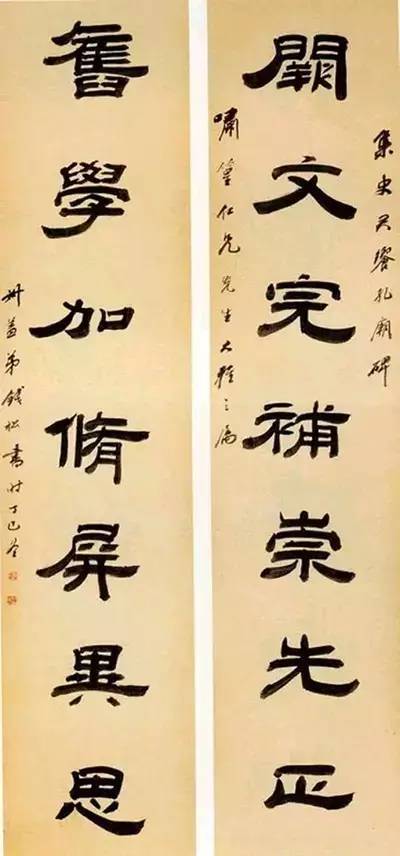 集史君饗孔廟碑
闕文完補崇先正
嘯篁仁兄先生大雅之屬
舊學加脩屏異思
弟錢松書時丁巳冬